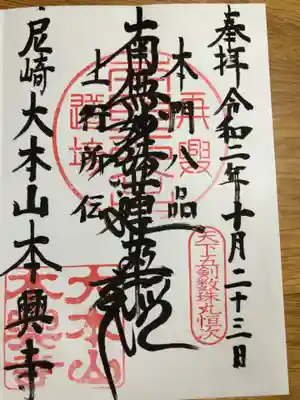 奉拝 令和二年十月二十三日
天下五剣数珠丸恒次
本門八品
南無妙法蓮華経
上行所伝
尼崎 大本山本興寺
大本山
本興寺